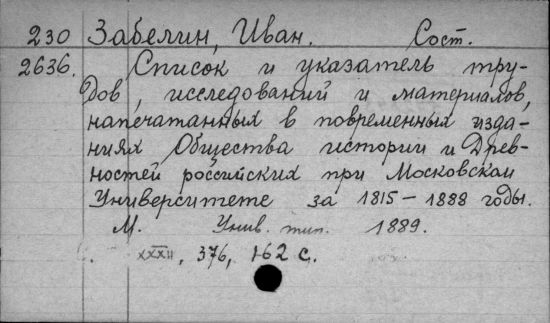 230 Забелин, Иван. Сост.
2636. Список и указатель тру-
дов, исследований и материалов,
напечатанных в повременных изда-
ниях Общества истории и Древ-
ностей российских при Московском
Университете за 1815-1888 годы.
М. Унив. тип. 1889.
XXXII, 376, 162 с.